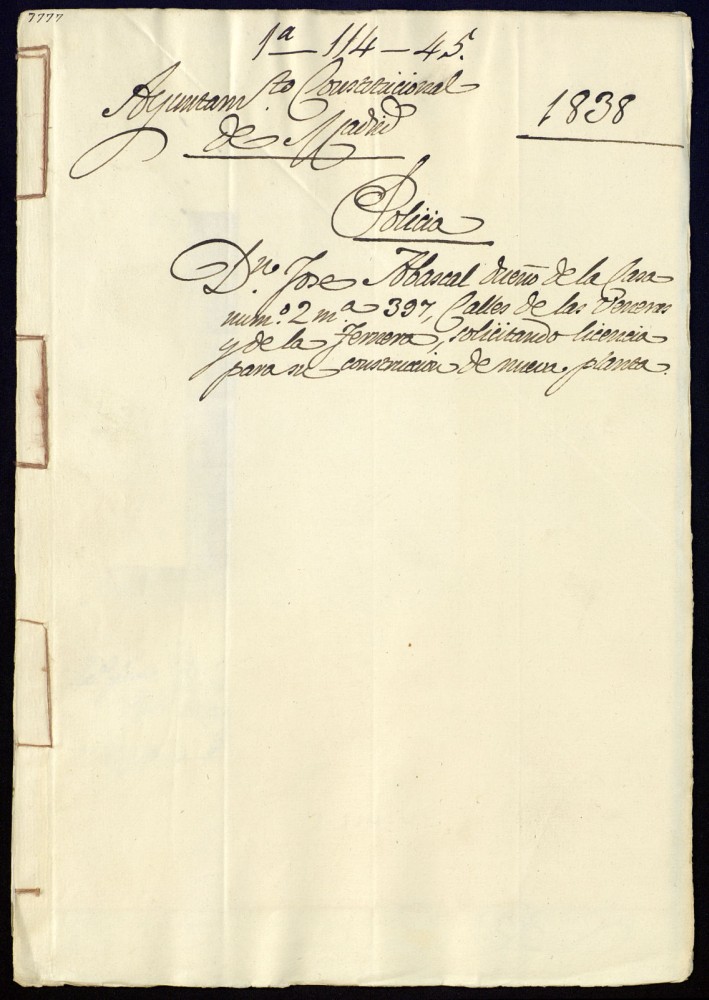 7777
1ª — 114 — 45.
Ayuntam.to Constitucional
de Madrid
1838
Policia
D.n Jose Abascal dueño de la Casa
num.º 2 m.a 397, Calles de las Veneras
y de la Ternera, solicitando licencia
para su construccion de nueva planta.